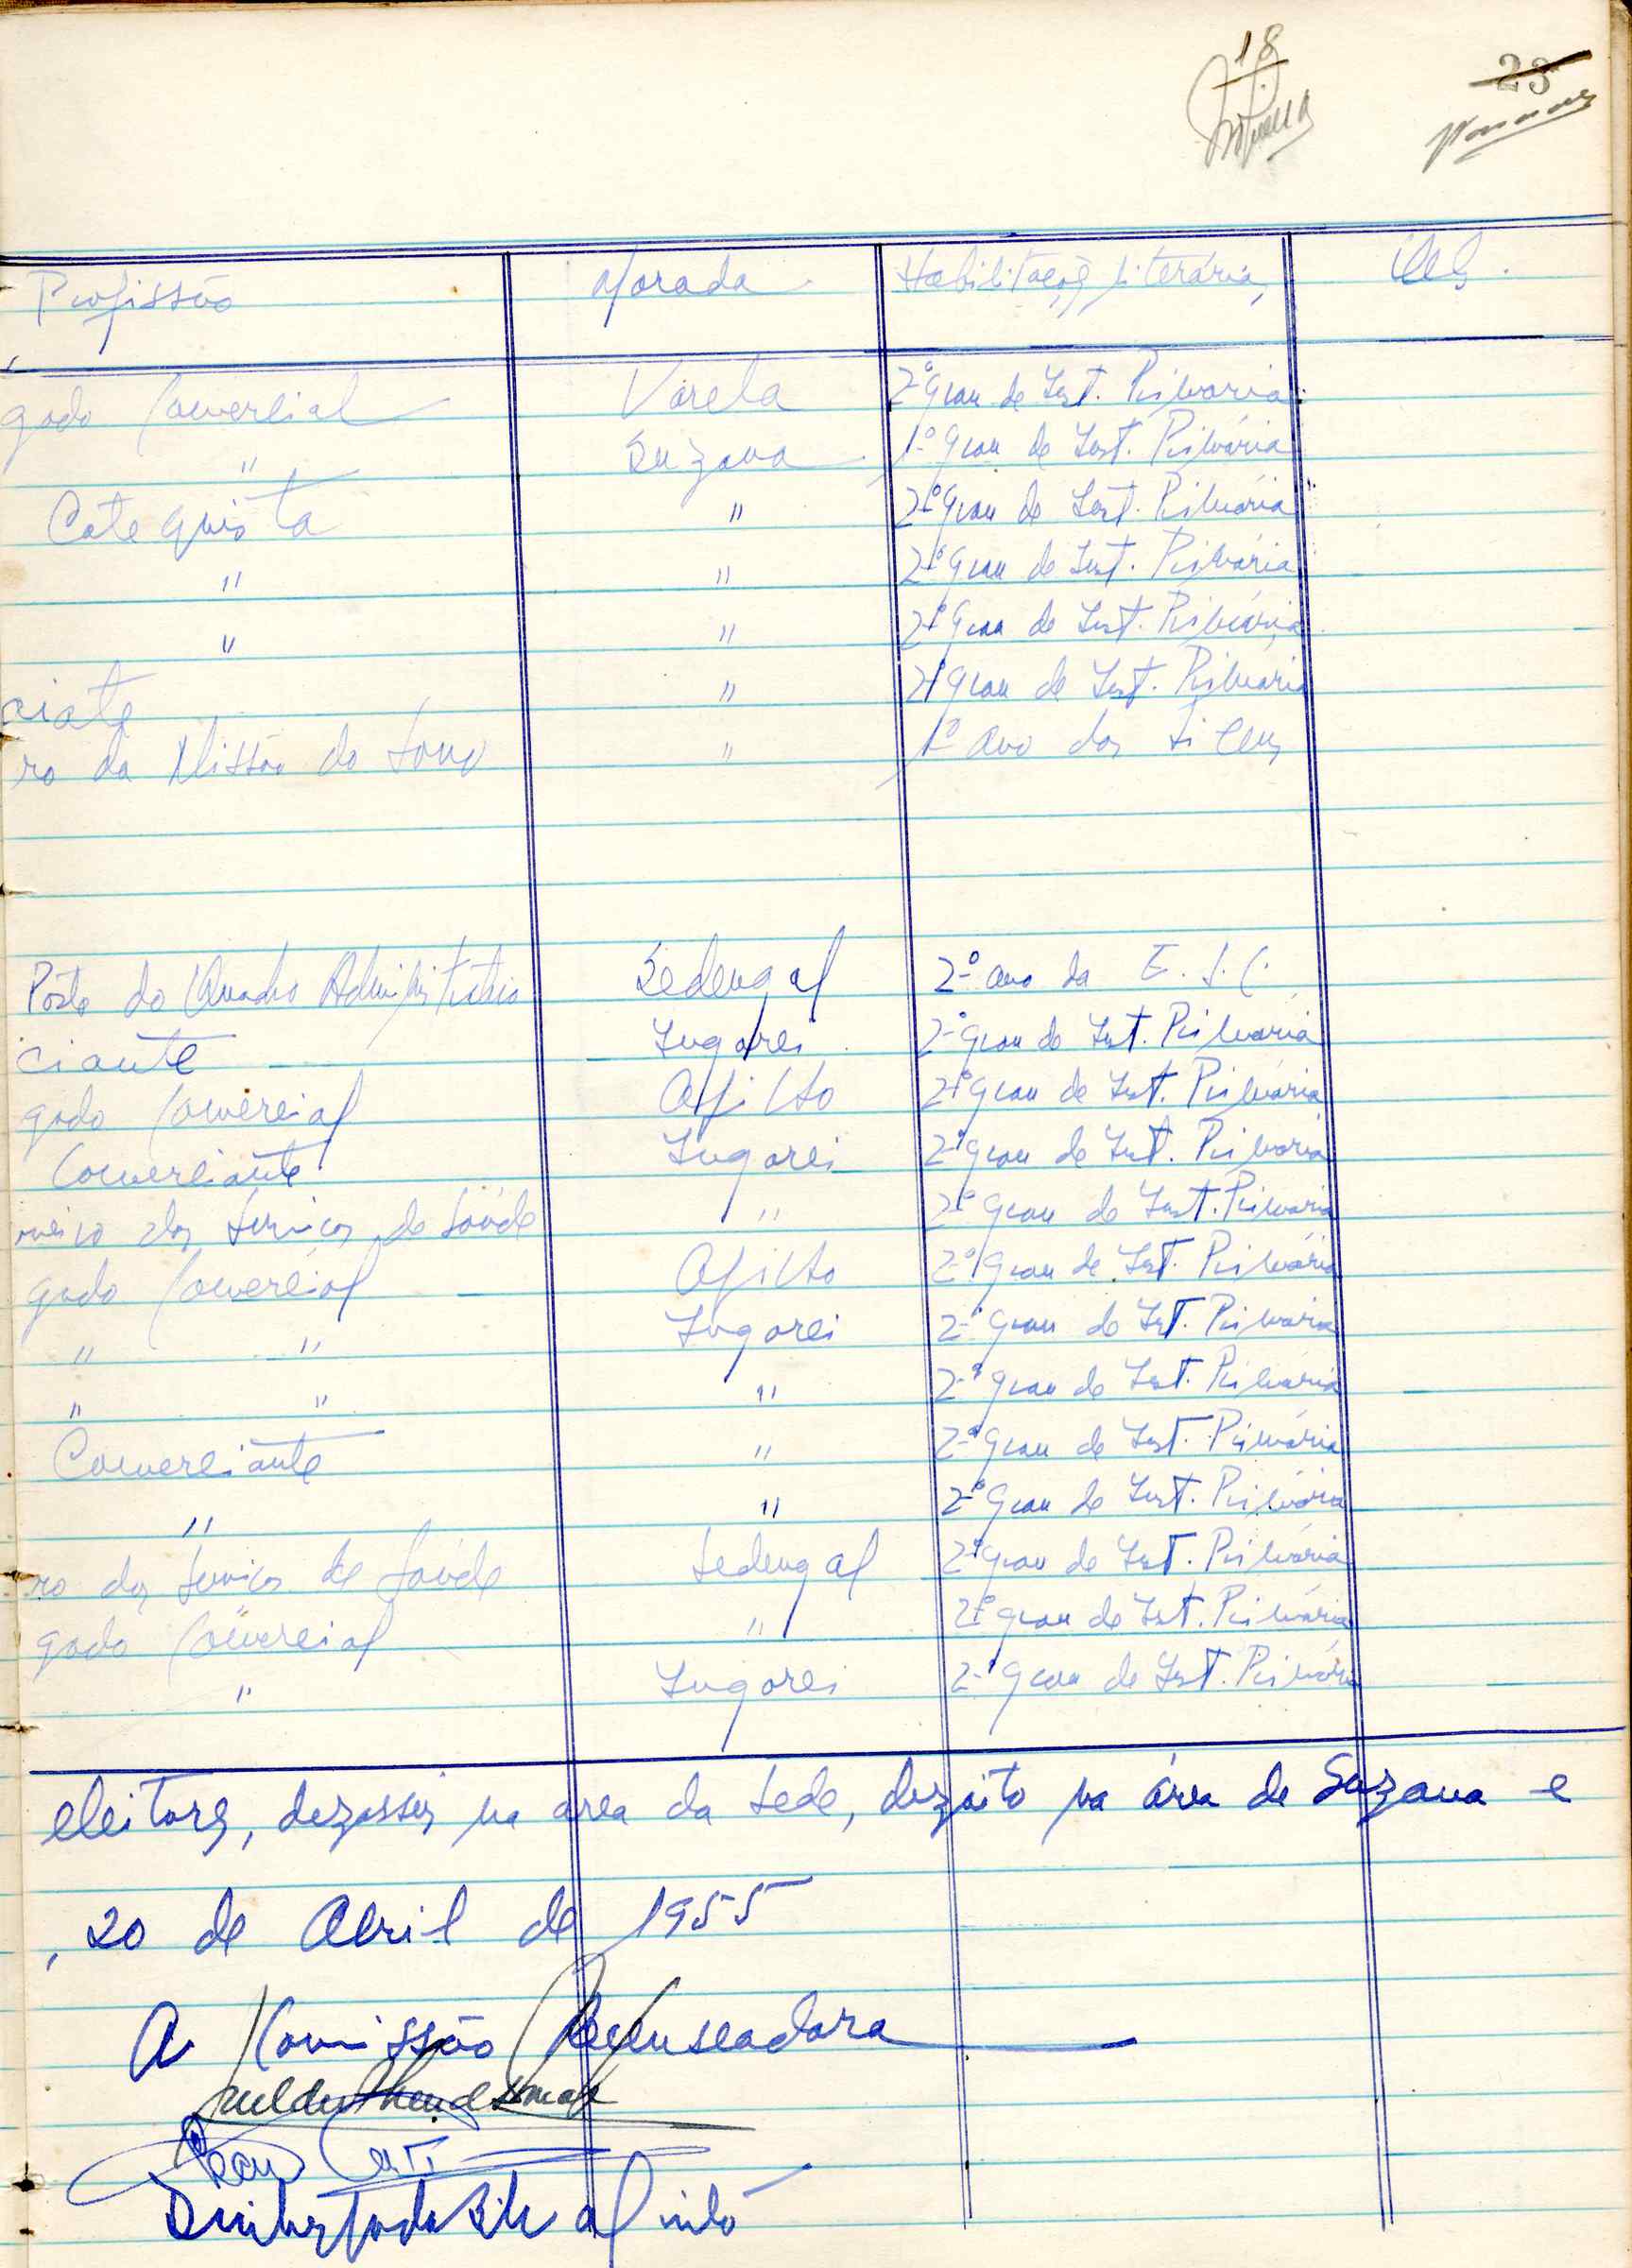 18
23
Profissão Morada Habilitações literárias Obs.
gado Comercial Varela 2º grau de Inst. Primária
" Suzana 1º grau de Inst. Primária
Catequista " 2º grau de Inst. Primária
" " 2º grau de Inst. Primária
" " 2º grau de Inst. Primária
ciate " 2º grau de Inst. Primária
ro da Missão do Sono " 1º ano dos liceus
Posto do Quadro Administrativo Sedengal 2º ano da E. S. C.
ciante Ingorei 2º grau de Inst. Primária
gado Comercial 2º grau de Inst. Primária
Comerciante Ingorei 2º grau de Inst. Primária
meiro dos Serviços de Saúde " 2º grau de Inst. Primária
gado Comercial 2º grau de Inst. Primária
" " Ingorei 2º grau de Inst. Primária
" " " 2º grau de Inst. Primária
Comerciante " 2º grau de Inst. Primária
" " 2º grau de Inst. Primária
ro dos Serviços de Saúde Sedengal 2º grau de Inst. Primária
gado Comercial " 2º grau de Inst. Primária
" Ingorei 2º grau de Inst. Primária
eleitores, dezasseis na área da Sede, dezoito na área de Suzana e
, 20 de Abril de 1955
A Comissão Recenseadora